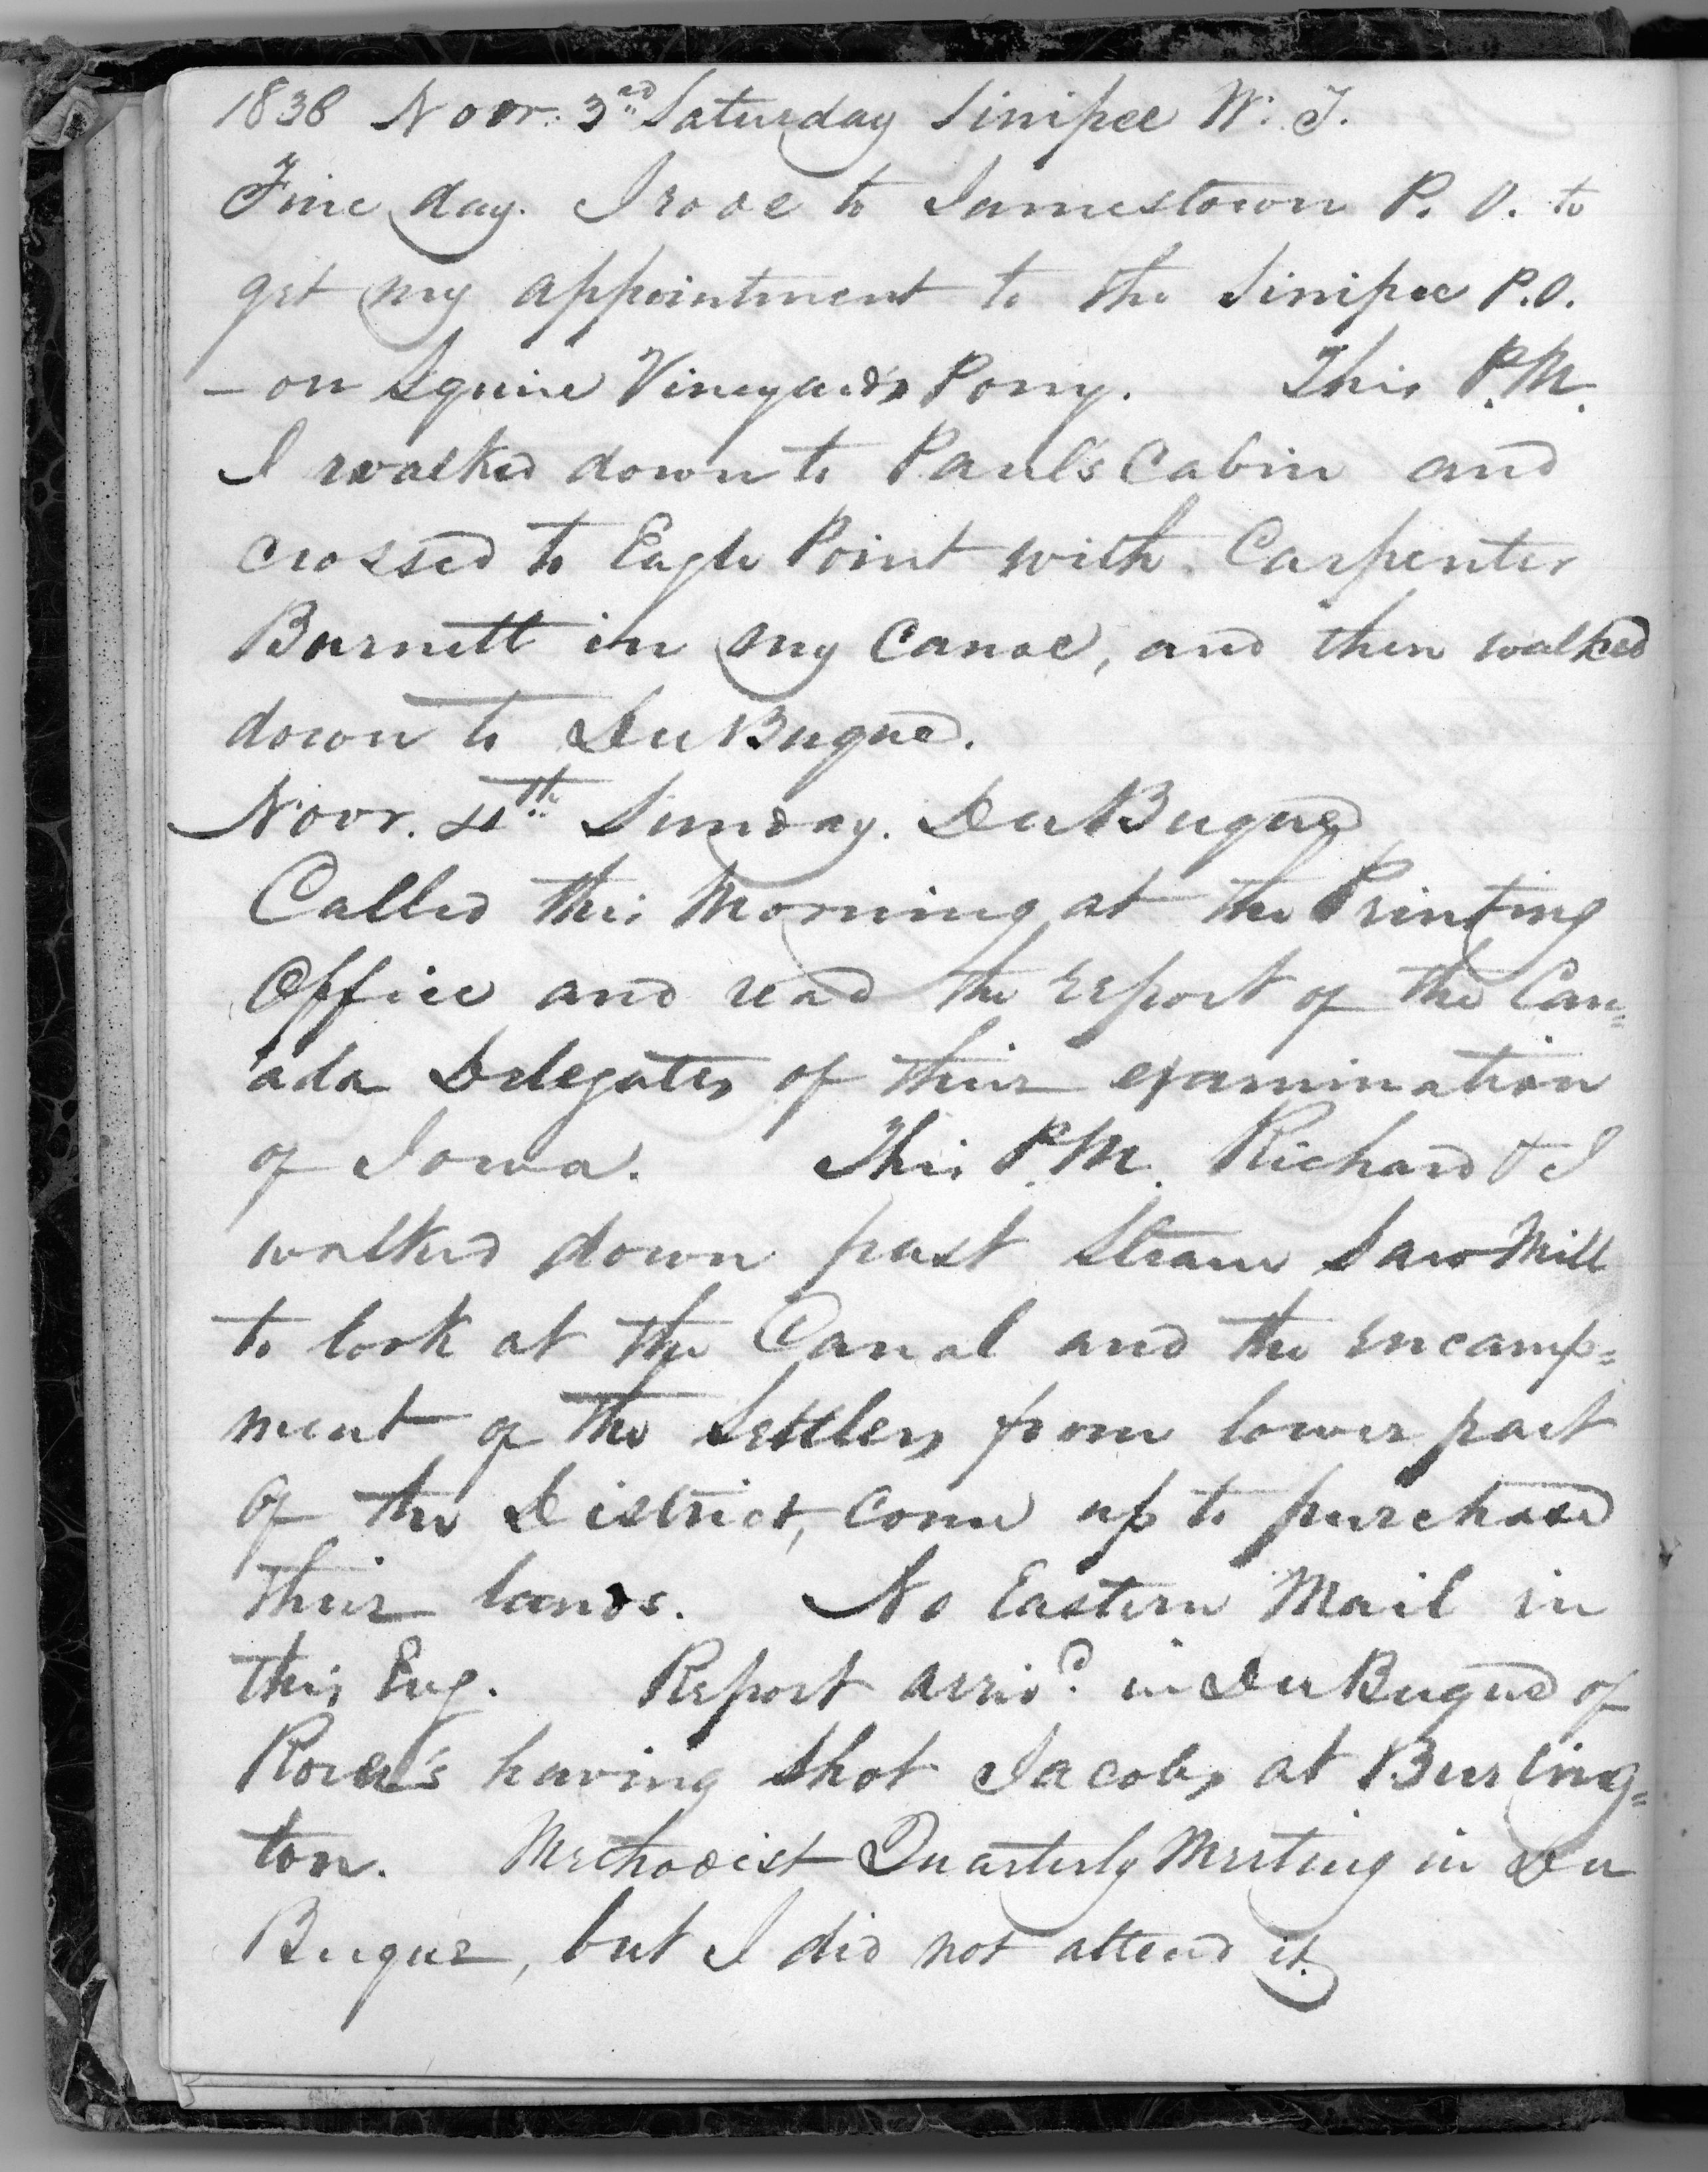 1838 Novr. 3rd Saturday Sinipee W. T.
Fine day. I rode to Jamestown P. O. to
get my appointment to the Sinipee P.O.
– on Squire Vineyard's Pony. This P.M.
I walked down to Paul's Cabin and
crossed to Eagle Point with Carpenter
Burnett in my Canoe, and then walked
down to DuBuque.
Novr. 4th Sunday. DuBuque
Called this Morning at the Printing
Office and read the report of the Can=
ada Delegates of their examination
of Iowa. This P.M. Richard & I
walked down past Steam Saw Mill
to look at the Canal and the encamp=
ment of the Settlers from lower part
of the District, come up to purchase
their lands. No Eastern Mail in
this Evg. Report arrivd. in DuBuque of
having shot Jacobs at Burling=
ton. Methodist Quarterly Meeting in Du
Buque, but I did not attend it.